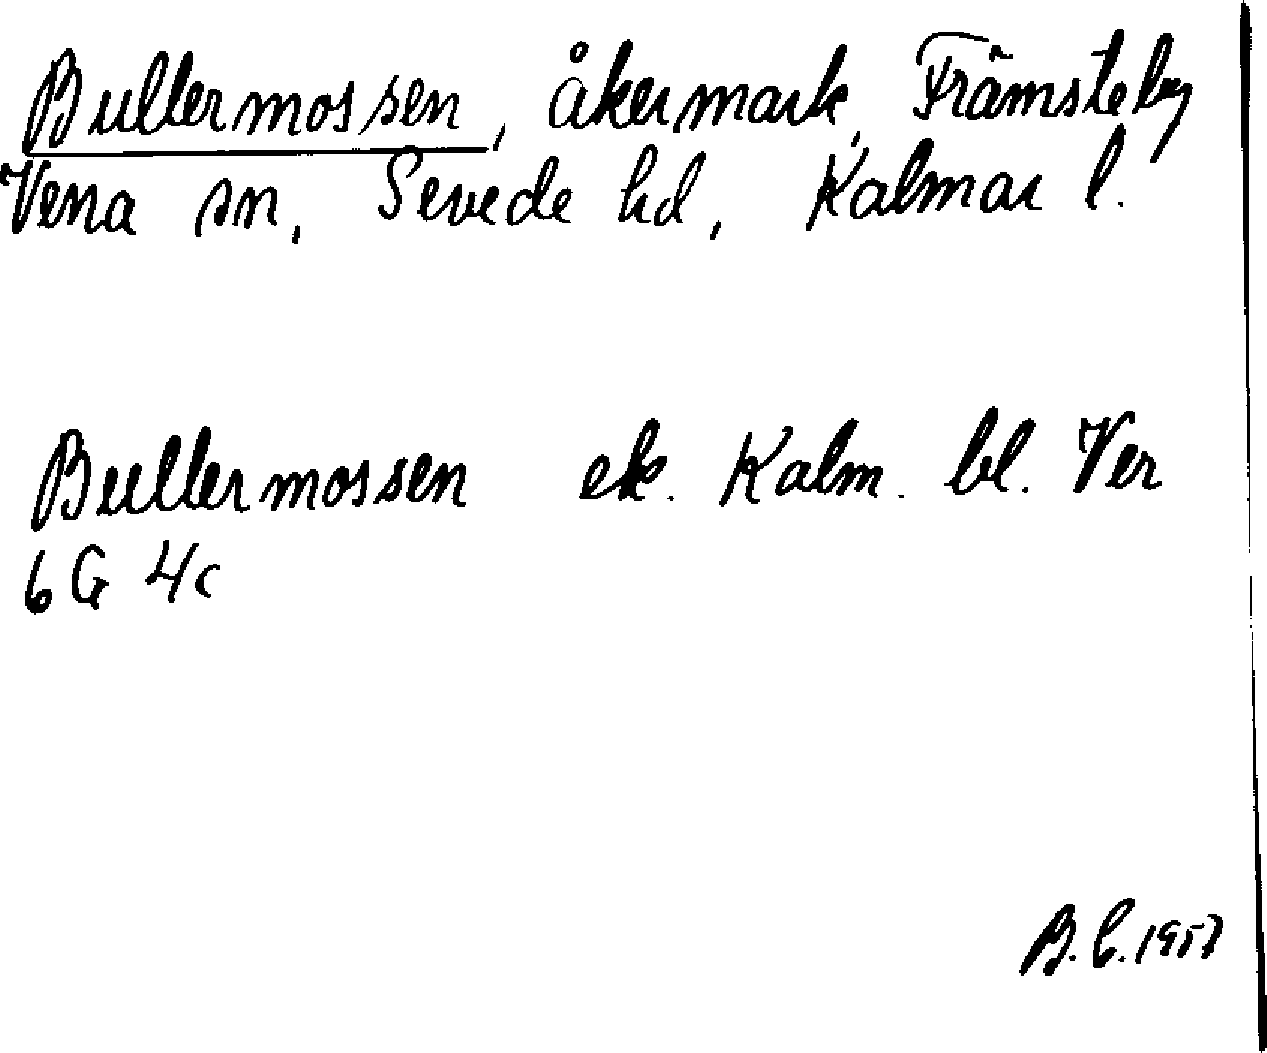 Bullermossen, åkermark, Främsteby
Vena sn, Sevede hd, Kalmar l.
Bullermossen ek. Kalm. bl. Ver
6G 4c
B.C. 1957